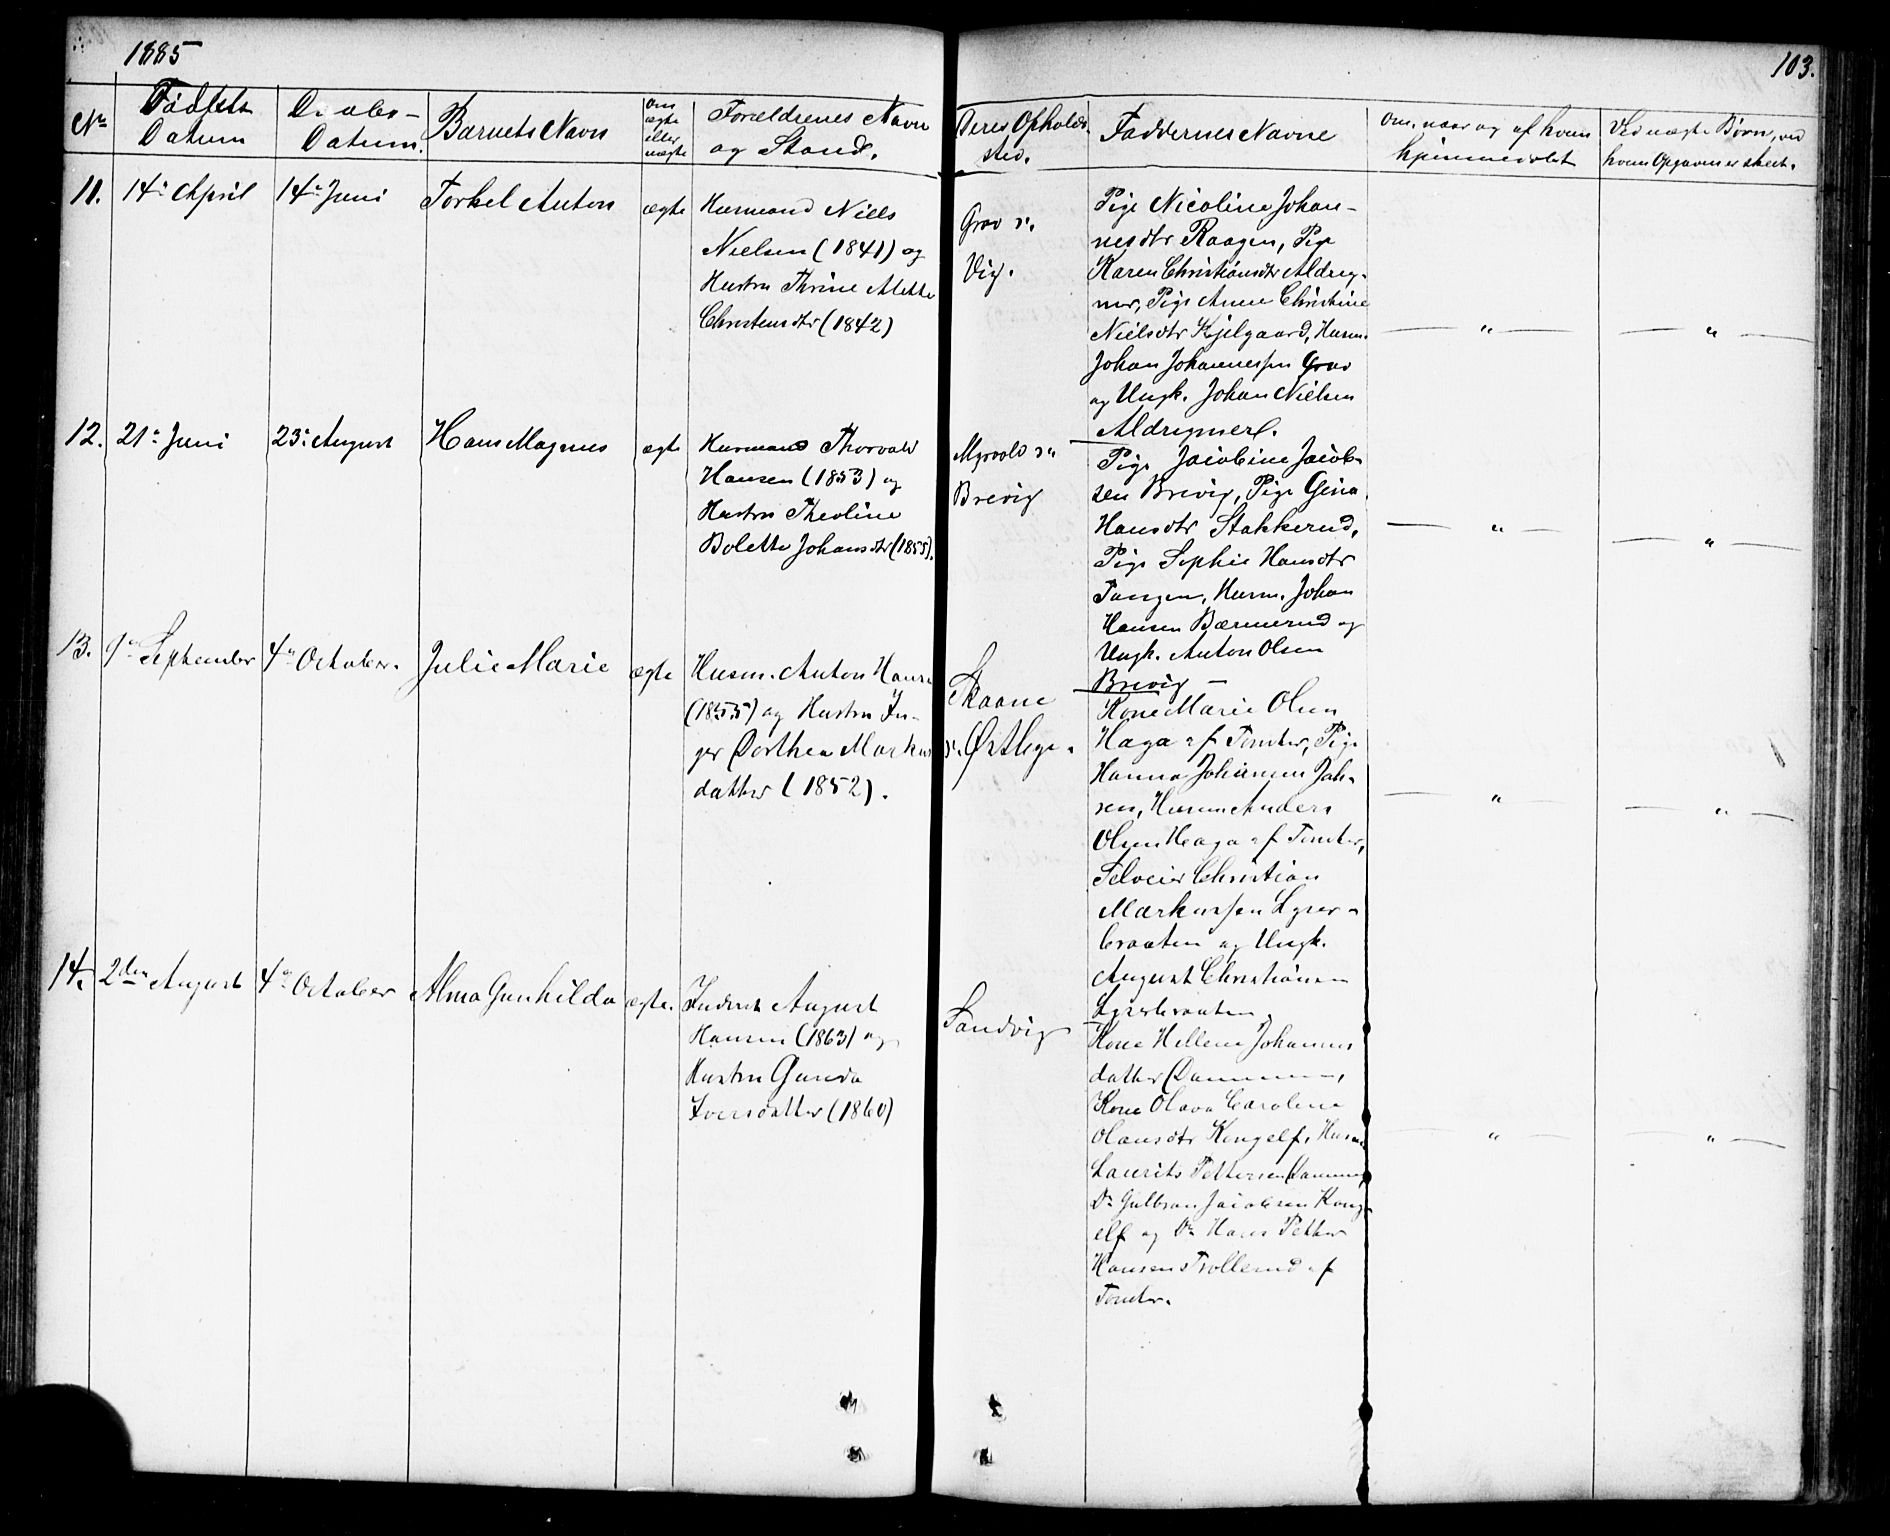 1885
103.
No
Fødsels
Datum
Daabs-
Datum.
Barnets Navn
Om
ægte
eller
uægte
Forældrenes Navn
og Stand.
Deres Opholds
sted.
Faddernes Navne
Om, naar og af hvem
hjemmedøbt
Ved uægte Børn, ved
hvem Opgaven er skeet.
11.
14de April
14de Juni
Torkel Anton
ægte
Husmand Niels
Nielsen (1841) og
Hustru Thrine Mette
Christensdtr (1842)
Grav v.
Vig.
Pige Nicoline Johan-
nesdtr Raagen, Pige
Karen Christiansdtr Aldrig-
mer, Pige Anne Christine
Nielsdtr Kjelgaard, Husm.
Johan Johannessen Grav
og Ungk. Johan Nielsen
Aldrigmer.
— " —
— " —
12.
21de Juni
23de August
Hans Magnus
ægte
Husmand Thorvald
Hansen (1853) og
Hustru Theoline
Bolette Johansdtr (1855).
Myrvold v.
Brevig
Pige Jacobine Jacob-
sen Brevig, Pige Gina
Hansdtr Stakkerud,
Pige Sophie Hansdtr
Tangen, Husm. Johan
Hansen Bærnerud og
Ungk. Anton Olsen
Brevig —
— " —
— " —
13.
September
4de October.
Julie Marie
ægte
Husm. Anton Hansen
(1855) og Hustru In-
ger Dorthea Markus
datter (1852).
Skaane
v. Østbye.
Kone Marie Olsen
Haga af Tomter, Pige
Hanna Johannen Joh-
sen, Husm Anders
Olsen Haga af Tomter,
Selveier Christian
Markussen Lyser-
braaten og Ungk.
August Christiansen
Lyserbraaten.
— " —
— " —
14.
2den August
4de October
Alma Gunhilda
ægte.
Inderst August
Hansen (1863) og
Hustru Gunda
Iversdatter (1860)
Sandvig
Kone Hellene Johannes
datter Dammen,
Kone Olava Caroline
Olausdtr Kongelf, Husm.
Laurits Pettersen Dammen,
Do Gulbran Jacobsen Kong-
elf og Do Hans Petter
Hansen Trollerud af
Tomter.
— " —
— " —